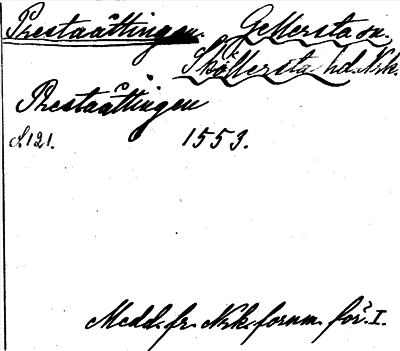 Prestaättingen. Gellersta sn.
Sköllersta hd. Nrk.
Prestaättingen
S. 121. 1553.
Medd. fr. Nrk. fornm. för. I.